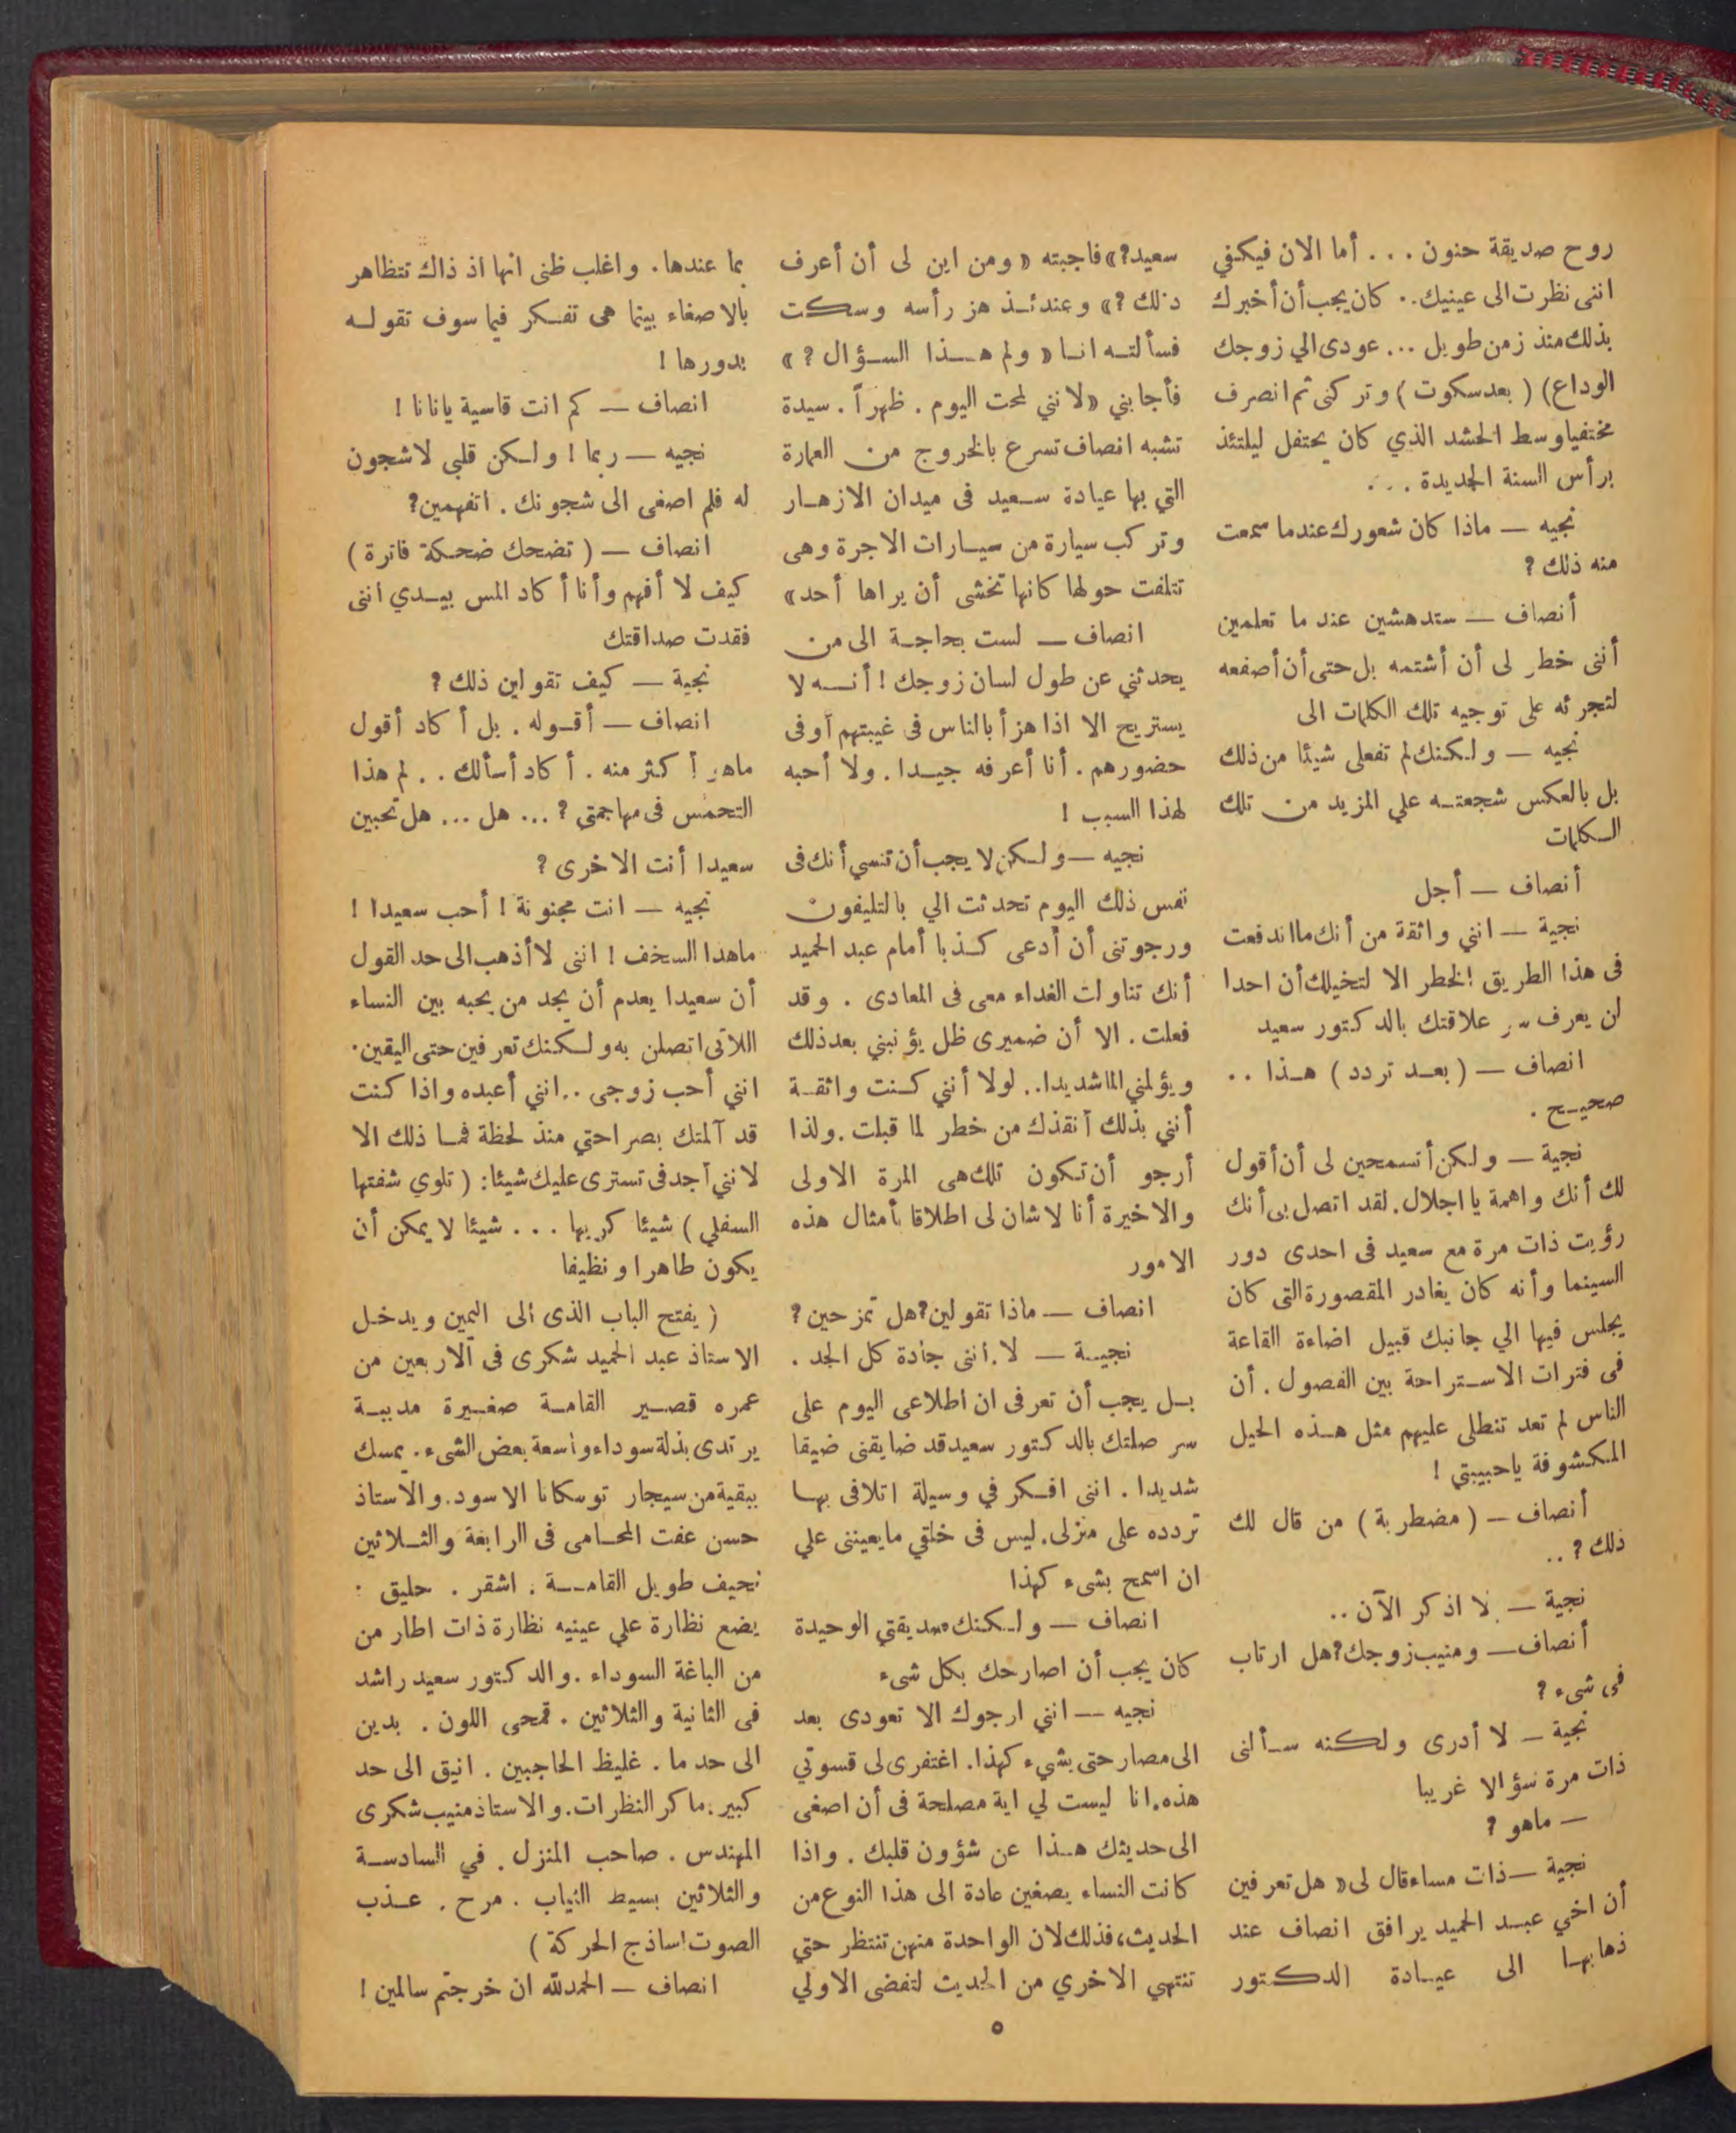 روح صديقة حنون . . . أما الان فيكفي
اننى نظرت الى عينيك . . كان يجب أن أخبرك
بذلك منذ زمن طويل ... عودى الي زوجك
الوداع) ( بعد سكوت ) وتركنى ثم انصرف
مختفيا وسط الحشد الذي كان يحتفل ليلتئذ
برأس السنة الجديدة . . .
نجيه — ماذا كان شعورك عندما سمعت
منه ذلك ?
أنصاف — ستدهشين عند ما تعلمين
أننى خطر لى أن أشتمه بل حتى أن أصفعه
لتجرئه على توجيه تلك الكلمات الى
نجيه — ولكنك لم تفعلى شيئا من ذلك
بل بالعكس شجعته علي المزيد من تلك
الكلمات
أنصاف — أجل
نجية — انني واثقة من أنك ما اندفعت
فى هذا الطريق الخطر الا لتخيلك أن احدا
لن يعرف سر علاقتك بالدكتور سعيد
انصاف — ( بعد تردد ) هذا . .
صحيح .
نجية — ولكن أتسمحين لى أن أقول
لك أنك واهمة يا اجلال. لقد اتصل بى أنك
رؤيت ذات مرة مع سعيد فى احدى دور
السينما وأنه كان يغادر المقصورة التى كان
يجلس فيها الي جانبك قبيل اضاءة القاعة
فى فترات الاستراحة بين الفصول . أن
الناس لم تعد تنطلى عليهم مثل هذه الحيل
المكشوفة ياحبيبتي !
أنصاف — ( مضطربة ) من قال لك
ذلك ? . .
نجية — لا اذكر الآن . .
أنصاف — ومنيب زوجك? هل ارتاب
فى شىء ?
نجية — لا أدرى ولكنه سألنى
ذات مرة سؤالا غريبا
— ماهو ?
نجية — ذات مساء قال لى « هل تعرفين
أن اخي عبد الحميد يرافق انصاف عند
ذهابها الى عيادة الدكتور
سعيد?» فاجبته « ومن اين لى أن أعرف
ذلك ?» وعندئذ هز رأسه وسكت
فسألته انا « ولم هذا السؤال ? »
فأجابني «لانني لمحت اليوم . ظهراً . سيدة
تشبه انصاف تسرع بالخروج من العمارة
التي بها عيادة سعيد فى ميدان الازهار
وتركب سيارة من سيارات الاجرة وهى
تتلفت حولها كانها تخشى أن يراها أحد»
انصاف — لست بحاجة الى من
يحدثني عن طول لسان زوجك ! أنه لا
يستريح الا اذا هزأ بالناس فى غيبتهم أو فى
حضورهم . أنا أعرفه جيدا . ولا أحبه
لهذا السبب !
نجيه — ولكن لا يجب أن تنسي أنك فى
نفس ذلك اليوم تحدثت الي بالتليفون
ورجوتنى أن أدعى كذبا أمام عبد الحميد
أنك تناولت الغداء معى فى المعادى . وقد
فعلت . الا أن ضميرى ظل يؤنبني بعد ذلك
ويؤلمني الما شديدا . . لولا أنني كنت واثقة
أنني بذلك أنقذك من خطر لما قبلت . ولذا
أرجو أن تكون تلك هى المرة الاولى
والاخيرة أنا لاشان لى اطلاقا بأمثال هذه
الامور
انصاف — ماذا تقولين? هل تمزحين ?
نجية — لا . أننى جادة كل الجد .
بل يجب أن تعرفى ان اطلاعى اليوم على
سر صلتك بالدكتور سعيد قد ضايقنى ضيقا
شديدا . اننى افكر في وسيلة اتلافى بها
تردده على منزلى. ليس فى خلقي مايعيننى علي
ان اسمح بشىء كهذا
انصاف — ولكنك صديقتي الوحيدة
كان يجب أن اصارحك بكل شىء
نجيه — انني ارجوك الا تعودى بعد
الى مصارحتى بشيء كهذا. اغتفرى لى قسوتي
هذه. انا ليست لي اية مصلحة فى أن اصغى
الى حديثك هذا عن شؤون قلبك . واذا
كانت النساء يصغين عادة الى هذا النوع من
الحديث، فذلك لان الواحدة منهن تنتظر حتي
تنتهي الاخري من الحديث لتفضى الاولي
بما عندها . واغلب ظنى انها اذ ذاك تتظاهر
بالاصغاء بينما هى تفكر فيما سوف تقوله
بدورها !
انصاف — كم انت قاسية يانانا !
نجيه — ربما ! ولكن قلبي لاشجون
له فلم اصغى الى شجونك . اتفهمين?
انصاف — ( تضحك ضحكة فاترة )
كيف لا أفهم وأنا أكاد المس بيدي اننى
فقدت صداقتك
نجية — كيف تقولين ذلك ?
انصاف — أقوله . بل أكاد أقول
ماهو أكثر منه . أكاد أسألك . . لم هذا
التحمس فى مهاجمتى ? ... هل ... هل تحبين
سعيدا أنت الاخرى ?
نجيه — انت مجنونة ! أحب سعيدا !
ماهذا السخف ! اننى لا أذهب الى حد القول
أن سعيدا يعدم أن يجد من يحبه بين النساء
اللاتى اتصلن به ولكنك تعرفين حتى اليقين .
انني أحب زوجى . . انني أعبده واذا كنت
قد آلمتك بصراحتي منذ لحظة فما ذلك الا
لانني أجد فى تسترى عليك شيئا : ( تلوي شفتها
السفلي ) شيئا كريها . . . شيئا لا يمكن أن
يكون طاهرا ونظيفا
( يفتح الباب الذى الى اليمين ويدخل
الاستاذ عبد الحميد شكرى فى الاربعين من
عمره قصير القامة صغيرة مدببة
يرتدى بذلة سوداء واسعة بعض الشىء . يمسك
ببقية من سيجار توسكانا الاسود. والاستاذ
حسن عفت المحامى فى الرابعة والثلاثين
نحيف طويل القامة . اشقر . حليق .
يضع نظارة علي عينيه نظارة ذات اطار من
من الباغة السوداء . والدكتور سعيد راشد
فى الثانية والثلاثين . قمحى اللون . بدين
الى حد ما . غليظ الحاجبين . انيق الى حد
كبير . ماكر النظرات. والاستاذ منيب شكرى
المهندس . صاحب المنزل . في السادسة
والثلاثين بسيط الثياب . مرح . عذب
الصوت ساذج الحركة )
انصاف — الحمدلله ان خرجتم سالمين !
٥